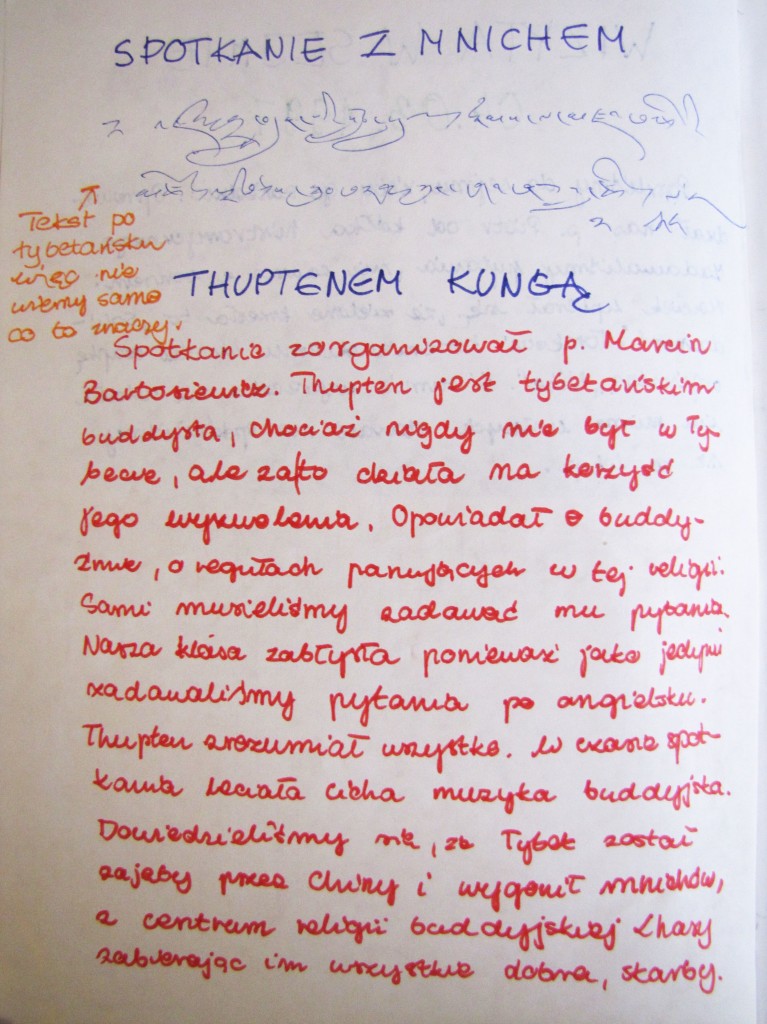 SPOTKANIE Z MNICHEM
Tekst po
tybetańsku
więc nie
wiemy same
co to znaczy.
THUPTENEM KUNGĄ
Spotkanie zorganizował p. Marcin
Bartosiewicz. Thupten jest tybetańskim
buddystą, chociaż nigdy nie był w Ty-
becie, ale za to działa na korzyść
jego wyzwolenia. Opowiadał o buddy-
zmie, o regułach panujących w tej religii.
Sami musieliśmy zadawać mu pytania.
Nasza klasa zabłysła ponieważ jako jedyni
zadawaliśmy pytania po angielsku.
Thupten zrozumiał wszystko. W czasie spot-
kania leciała cicha muzyka buddyjska.
Dowiedzieliśmy się, że Tybet został
zajęty przez Chiny i wygonił mnichów,
z centrum religii buddyjskiej Lhasy
zabierając im wszystkie dobra, skarby.